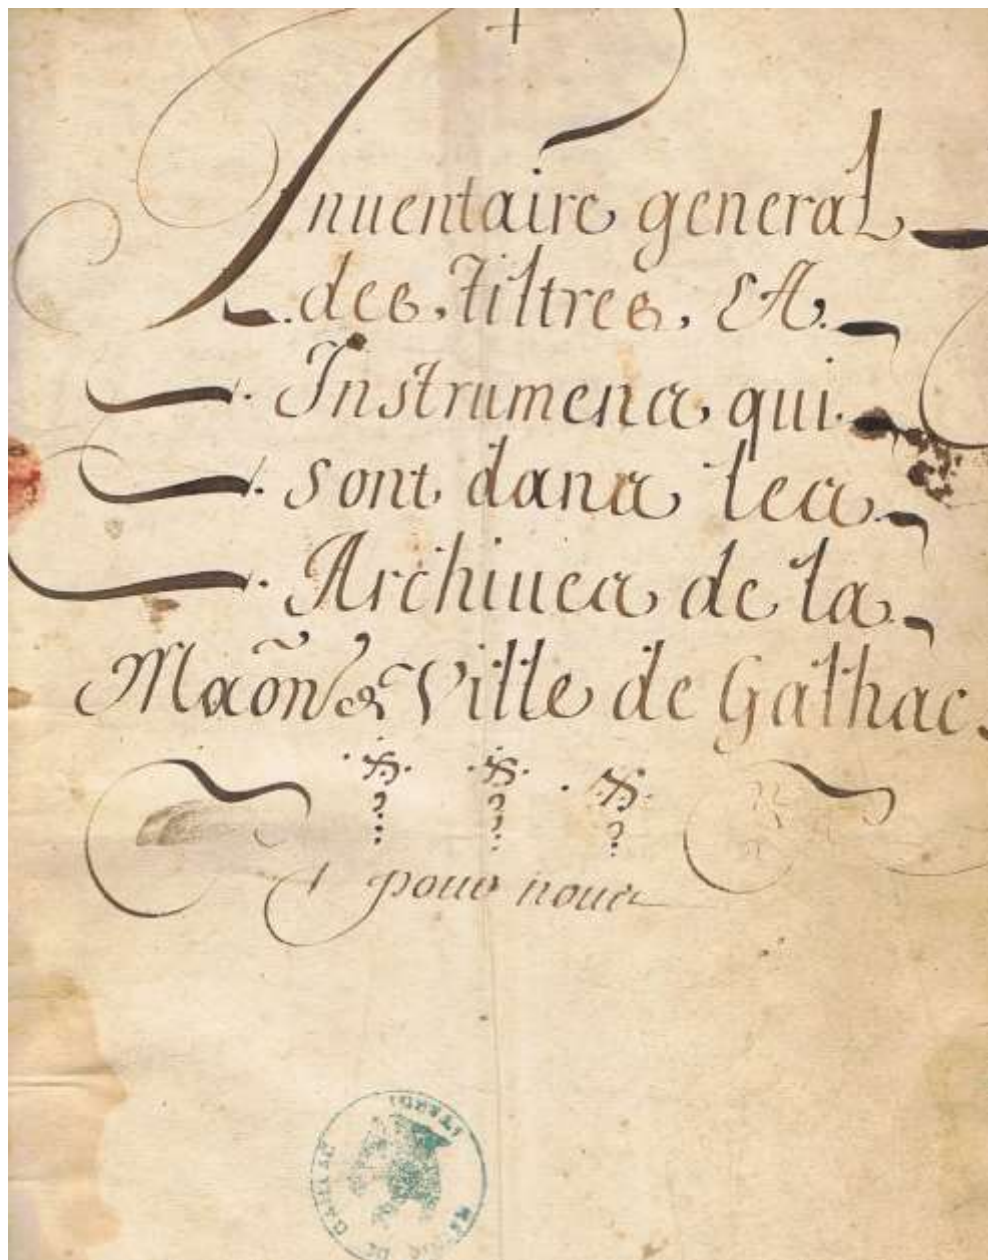 Inuentaire general
des Tiltres, Et
Instrumens qui
sont dans les
Archiues de la
Maõn de Ville de Galhac.
pour nous
MAIRIE DE GAILLAC (TARN)